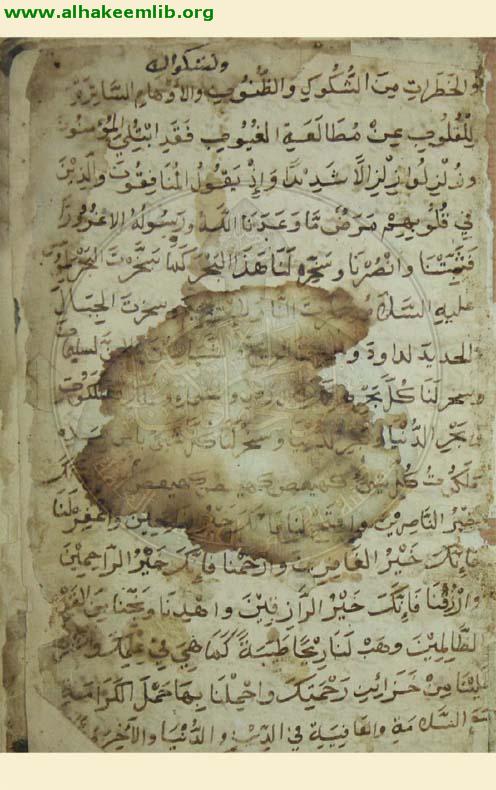 www.alhakeemlib.org
والخطرات من الشكوك والظنون والأوهام الساترة
للقلوب عن مطالعة الغيوب فقد ابتلي المؤمنون
وزلزلوا زلزالا شديدا وإذ يقول المنافقون والذين
في قلوبهم مرض ما وعدنا الله ورسوله الا غرورا
فثبتنا وانصرنا وسخر لنا هذا البحر كما سخرت البحر
عليه السلام النار وسخرت الجبال
الحديد لداود و الريح والشياطين لسليمان
وسخر لنا كل بحر
وبحر الدنيا وسخر لنا كل شيء
ملكوت كل شيء كهيعص كهيعص كهيعص
خير الناصرين وافتح لنا فانك خير واغفر لنا
فإنك خير الغافرين وارحمنا فإنك خير الراحمين
وارزقنا فإنك خير الرازقين واهدنا ونجنا من القوم
الظالمين وهب لنا ريحا طيبة كما هي في علمك
علينا من خزائن رحمتك واحملنا بها حمل الكرامة
السلامة والعافية في الدين والدنيا والآخرة